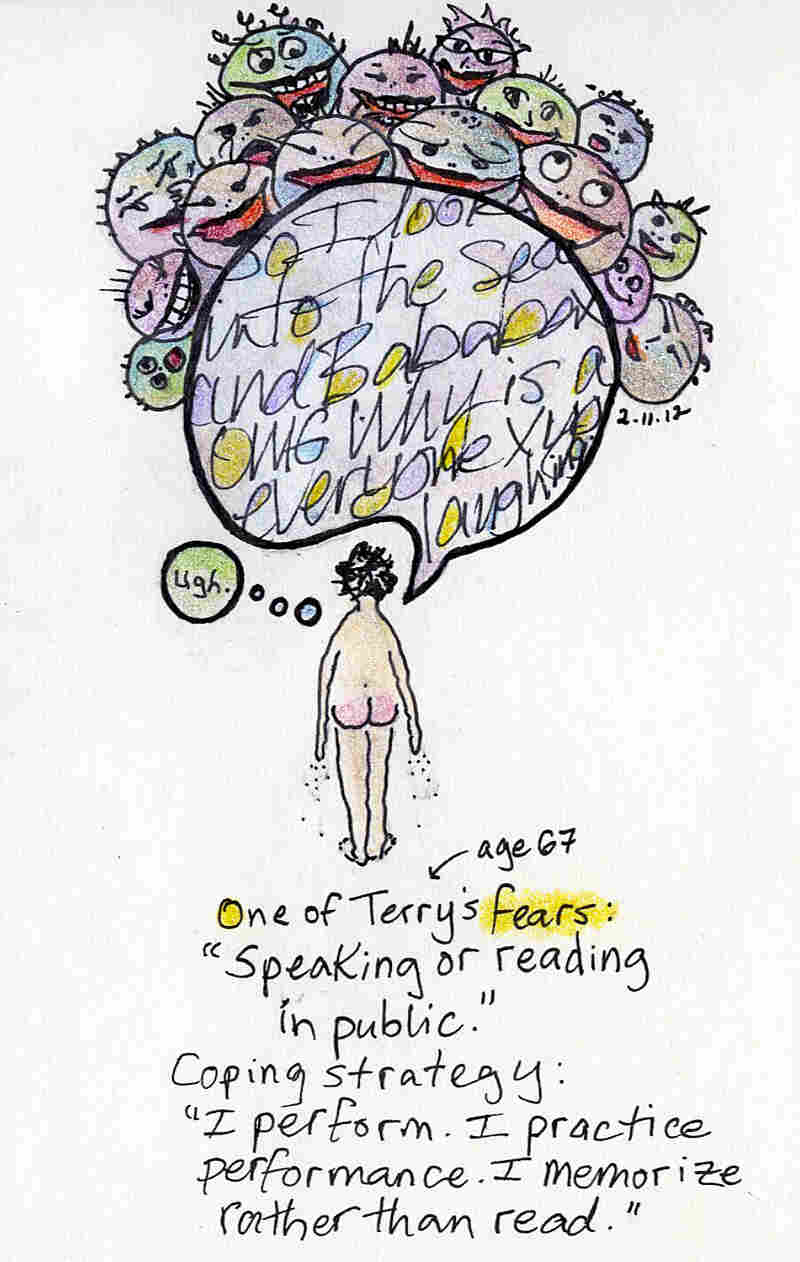 So I look
into the spa
and Bababax
OMG Why is a
everyone x up
laughing.
2.11.12
ugh.
age 67
One of Terry's fears:
"Speaking or reading
in public."
Coping strategy:
"I perform. I practice
performance. I memorize
rather than read."